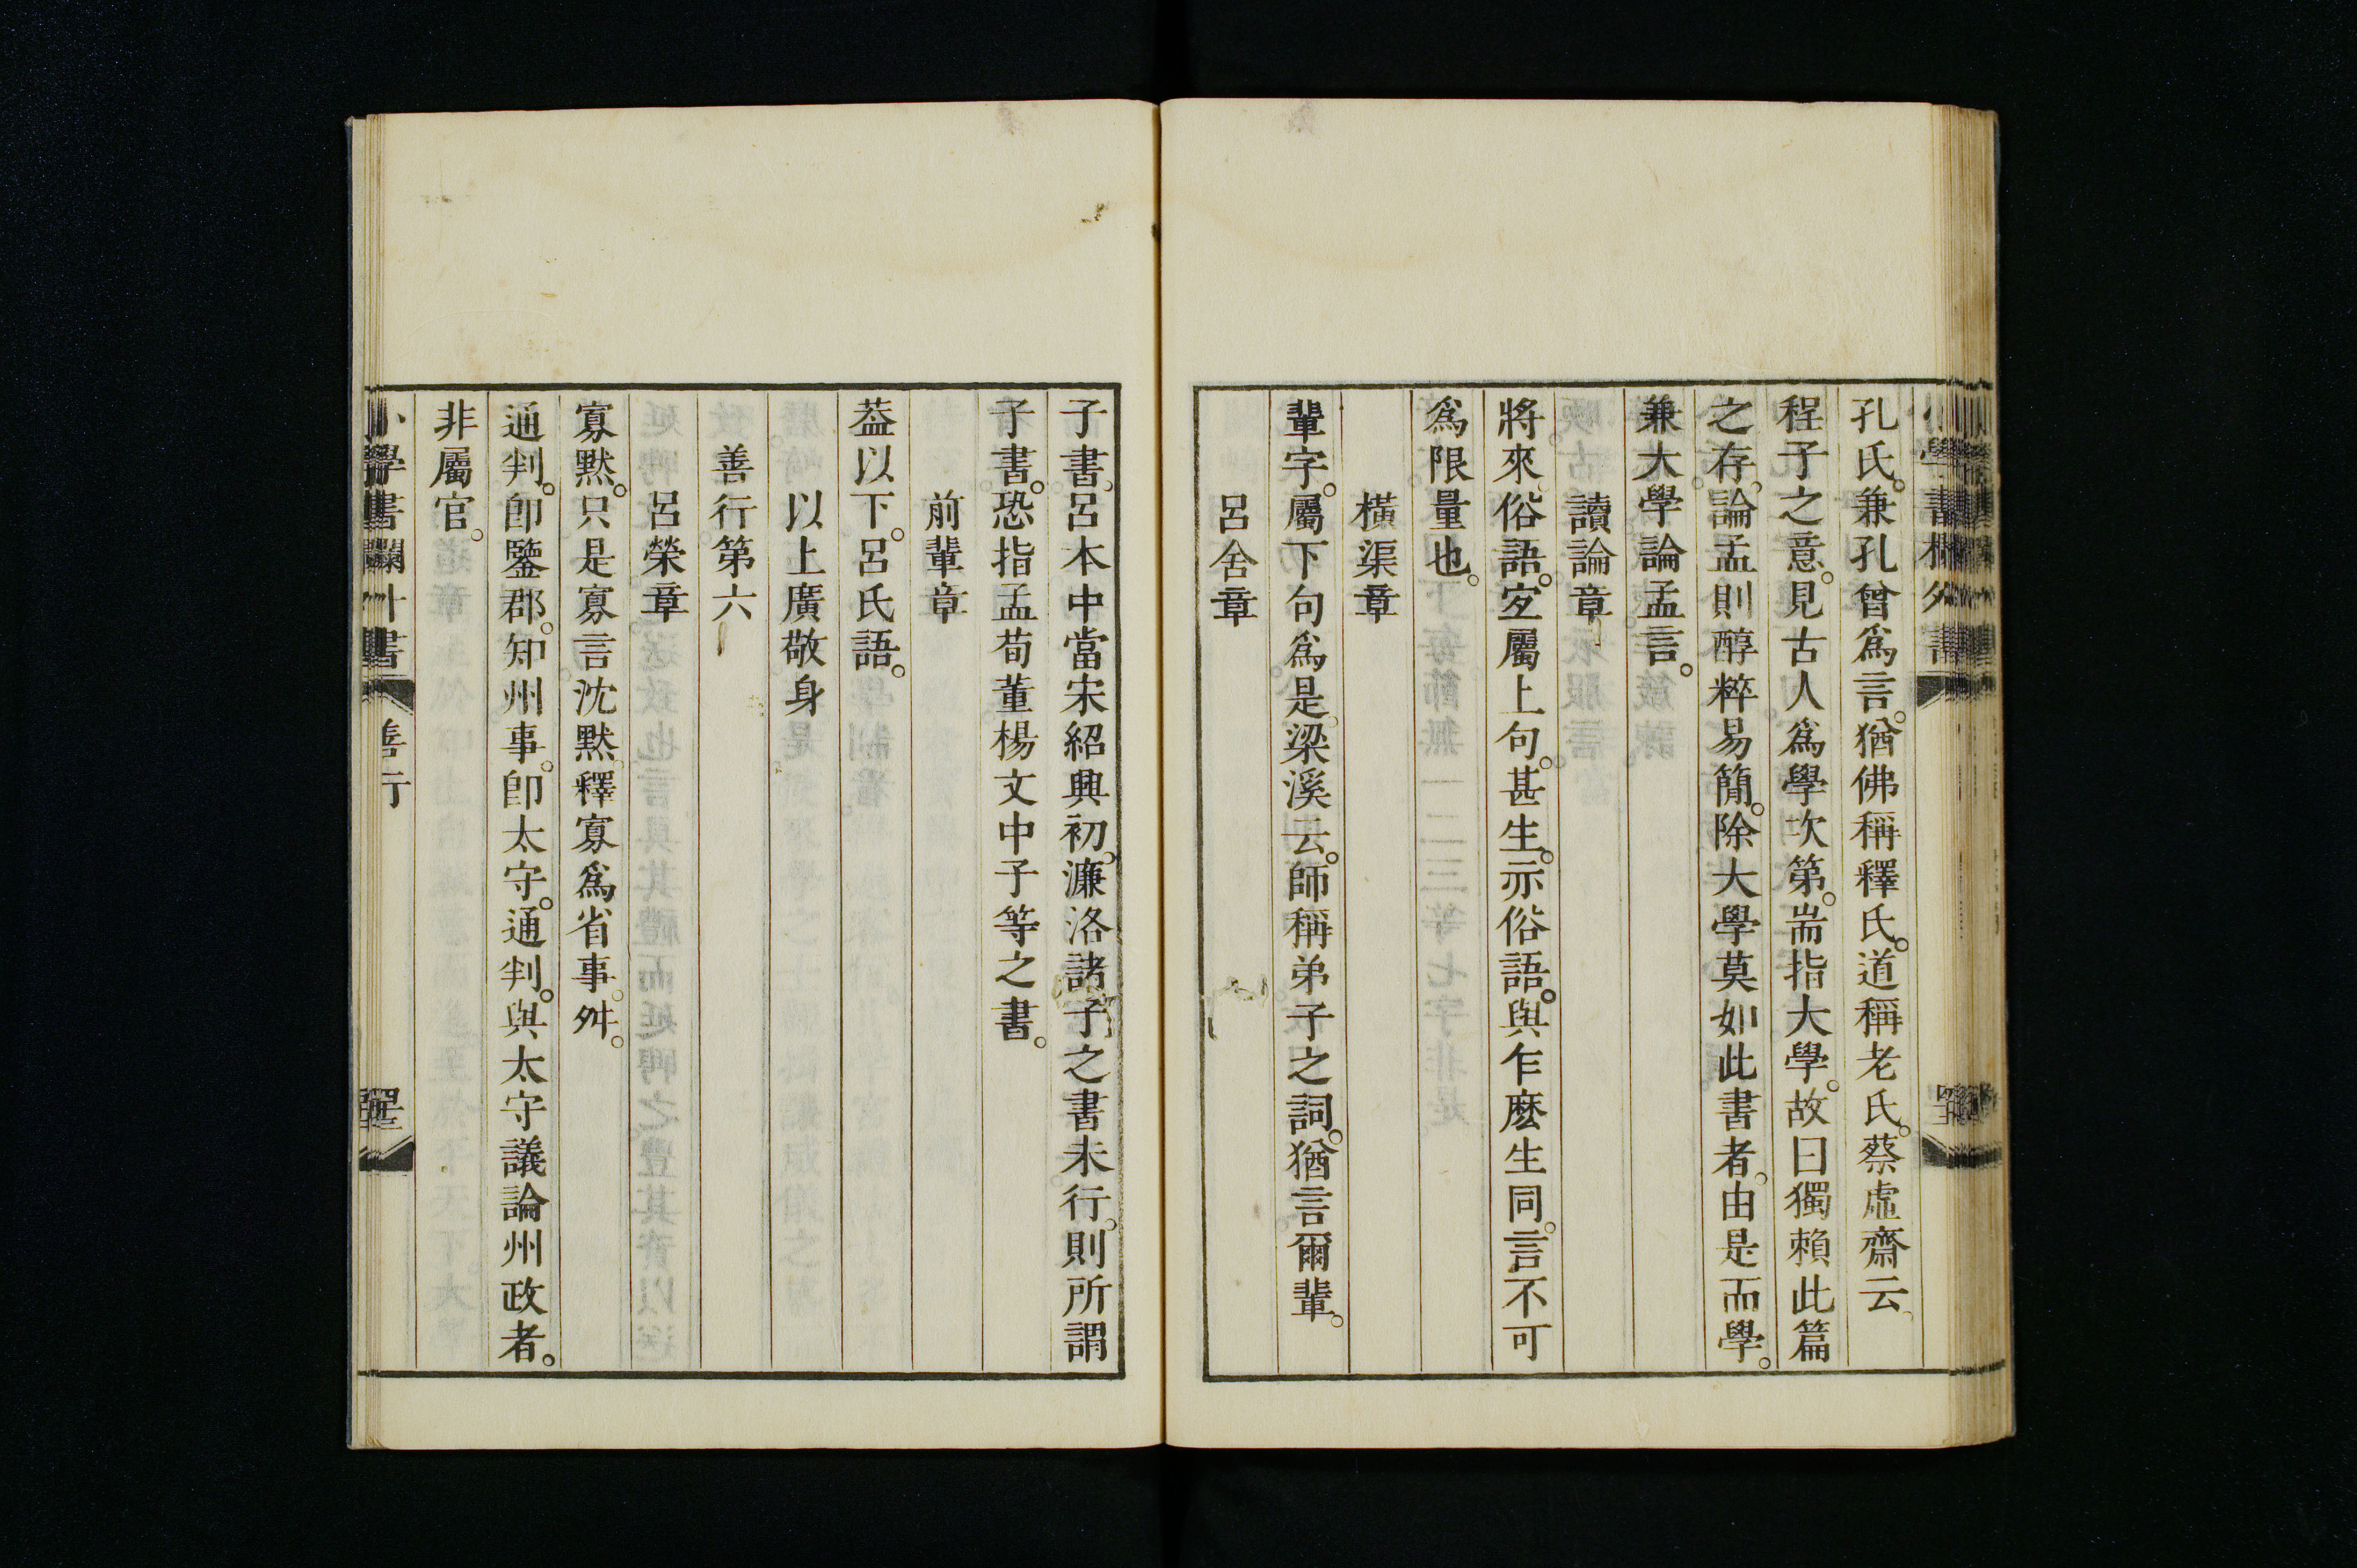 孔氏。兼孔曾爲言。猶佛稱釋氏。道稱老氏。蔡虛齋云。
程子之意。見古人爲學次第。耑指大學。故曰獨賴此篇
之存。論孟則醇粹易簡。除大學莫如此書者。由是而學。
兼大學論孟言。
讀論章
將來俗語。定屬上句。甚生。亦俗語。與乍麽生同。言不可
爲限量也。
橫渠章
輩字。屬下句爲是。梁溪云。師稱弟子之詞。猶言爾輩。
呂舍章
子書。呂本中當宋紹興初。濂洛諸子之書未行。則所謂
子書。恐指孟荀董楊文中子等之書。
前輩章
葢以下。呂氏語。
以上廣敬身
善行第六
呂榮章
寡默。只是寡言沈默。釋寡爲省事。舛。
通判。卽鑒郡。知州事。卽太守。通判。與太守議論州政者。
非屬官。
小學書欄外書
善行